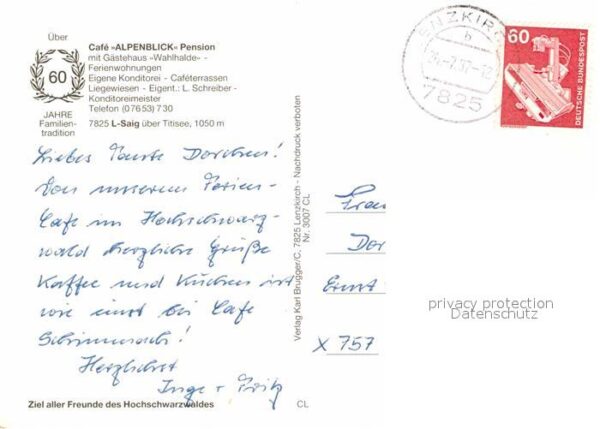 Über
60
JAHRE
Familien-
tradition
Café »ALPENBLICK« Pension
mit Gästehaus »Wahlhalde« -
Ferienwohnungen
Eigene Konditorei - Caféterrassen
Liegewiesen - Eigent.: L. Schreiber -
Konditoreimeister
Telefon (07653) 730
7825 L-Saig über Titisee, 1050 m
Liebes Tante Dorchen!
Von unserem Ferien-
Cafe im Hochschwarz-
wald herzliche Grüße
Kaffee und Kuchen ist
wie einst bei Cafe
Herzlichst
Inge + Fritz
Ziel aller Freunde des Hochschwarzwaldes
CL
Verlag Karl Brugger/C. 7825 Lenzkirch - Nachdruck verboten
Nr. 3007 CL
ENZKIRC
b
7825
60
DEUTSCHE BUNDESPOST
Frau
Dor
Ernst
X 757
privacy protection
Datenschutz